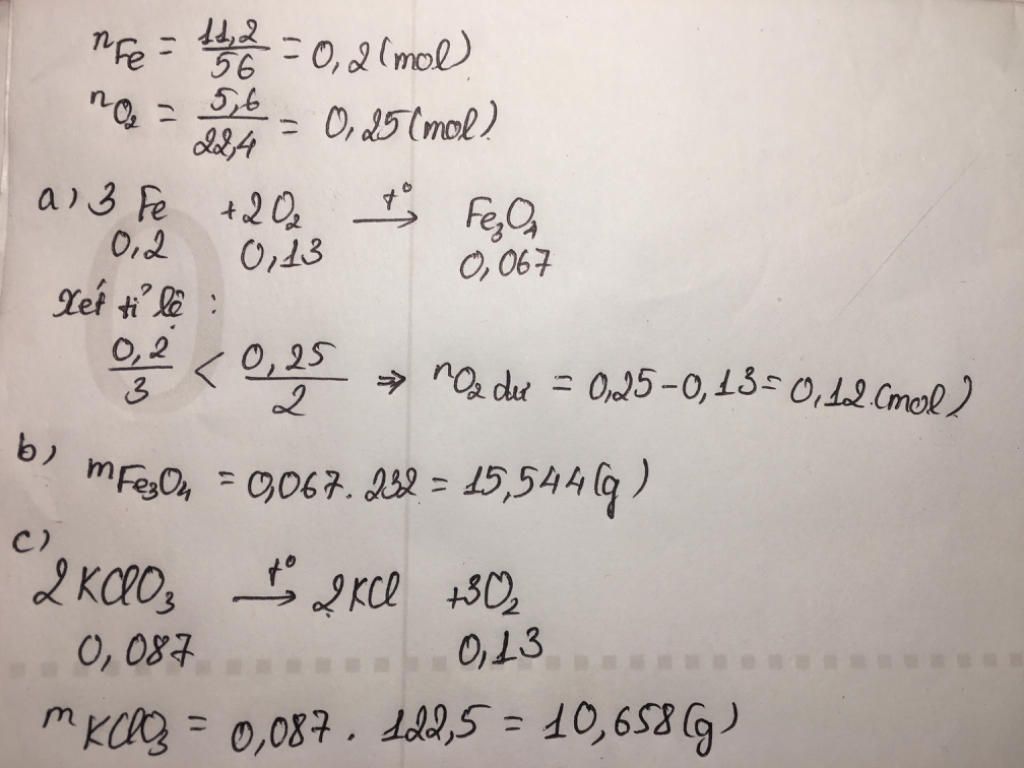 nFe = 11,2/56 = 0,2 (mol)
nO2 = 5,6/22,4 = 0,25 (mol)
a) 3 Fe + 2O2 t° → Fe3O4
0,2 0,13 0,067
Xét tỉ lệ :
0,2/3 < 0,25/2 ⇒ nO2 dư = 0,25 - 0,13 = 0,12 (mol)
b) mFe3O4 = 0,067 . 232 = 15,544 (g)
c)
2KClO3 t° → 2KCl + 3O2
0,087 0,13
mKClO3 = 0,087 . 122,5 = 10,658 (g)